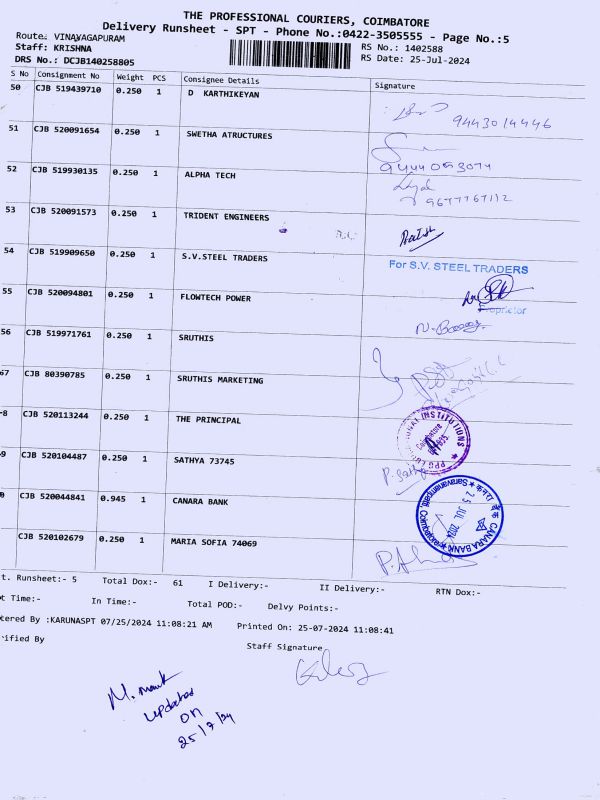 THE PROFESSIONAL COURIERS, COIMBATORE
Delivery Runsheet - SPT - Phone No.:0422-3505555 - Page No.:5
Route: VINAYAGAPURAM
Staff: KRISHNA RS No.: 1402588
DRS No.: DCJB140258805 RS Date: 25-Jul-2024
S No Consignment No Weight PCS Consignee Details Signature
50 CJB 519439710 0.250 1 D KARTHIKEYAN 9443014446
51 CJB 520091654 0.250 1 SWETHA ATRUCTURES 9444093074
52 CJB 519930135 0.250 1 ALPHA TECH 9677767112
53 CJB 520091573 0.250 1 TRIDENT ENGINEERS
54 CJB 519909650 0.250 1 S.V.STEEL TRADERS For S.V. STEEL TRADERS
Proprietor
55 CJB 520094801 0.250 1 FLOWTECH POWER
56 CJB 519971761 0.250 1 SRUTHIS
67 CJB 80390785 0.250 1 SRUTHIS MARKETING
-8 CJB 520113244 0.250 1 THE PRINCIPAL
9 CJB 520104487 0.250 1 SATHYA 73745 P. Sathya
0 CJB 520044841 0.945 1 CANARA BANK CANARA BANK 25 JUL 2024
CJB 520102679 0.250 1 MARIA SOFIA 74069
t. Runsheet:- 5 Total Dox:- 61 I Delivery:- II Delivery:- RTN Dox:-
t Time:- In Time:- Total POD:- Delvy Points:-
tered By :KARUNASPT 07/25/2024 11:08:21 AM Printed On: 25-07-2024 11:08:41
rified By Staff Signature
updated
on
25/7/24